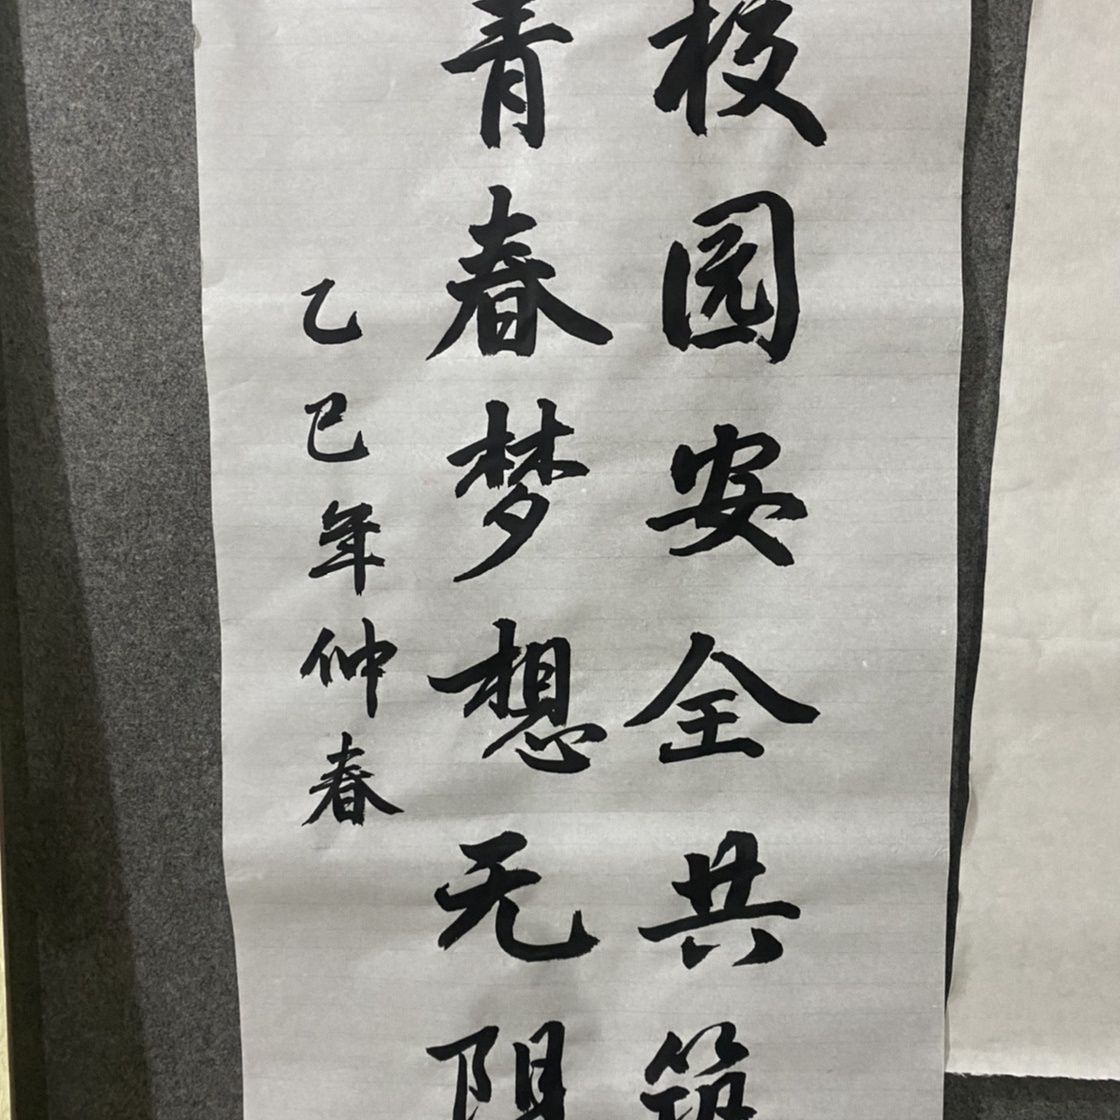 校园安全共筑
青春梦想无阻
乙巳年仲春